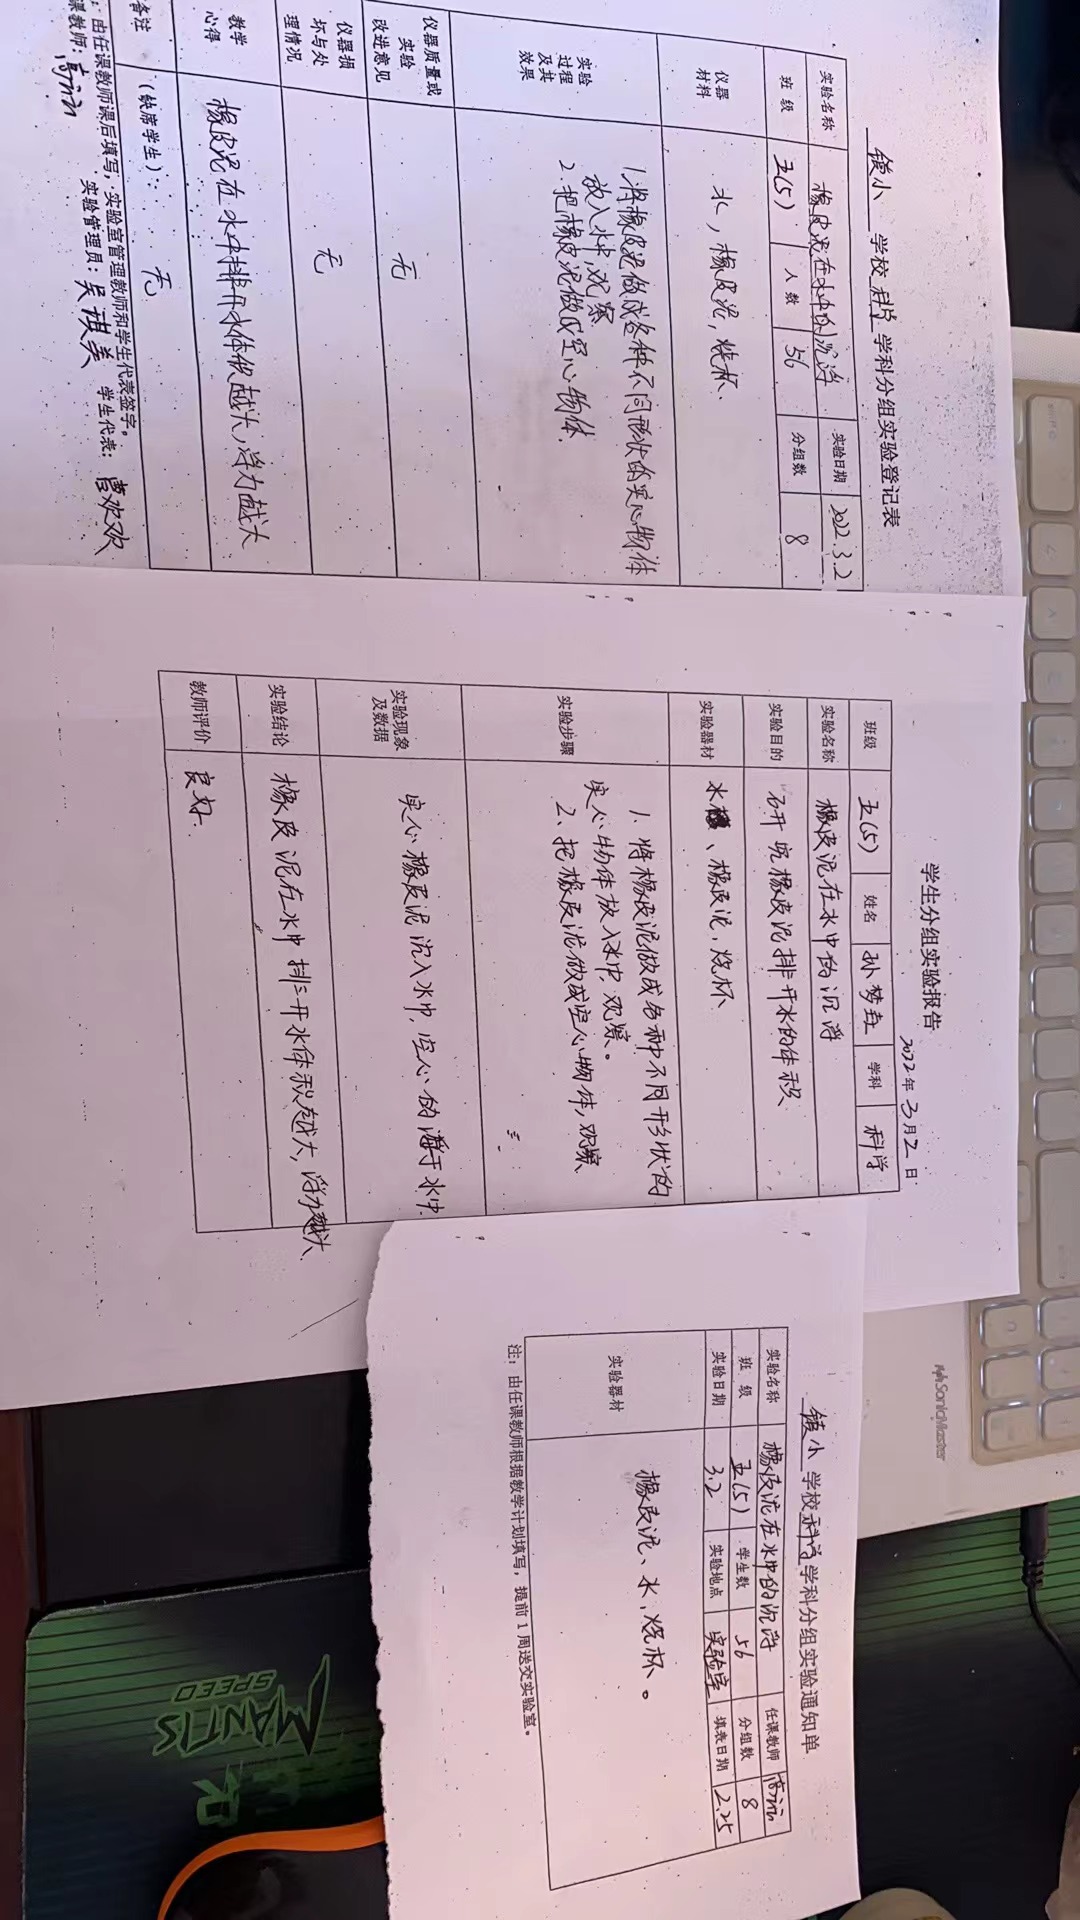 镇小 学校 科学 学科分组实验登记表
实验名称 橡皮泥在水中的沉浮 实验日期 2022.3.2
班 级 五(5) 人 数 56 分组数 8
仪器
材料
水，橡皮泥，烧杯.
实验
过程
及其
效果
1.将橡皮泥做成各种不同形状的实心物体
放入水中,观察
2.把橡皮泥做成空心物体.
仪器质量或
实验
改进意见
无
仪器损
坏与处
理情况
无
教学
心得
橡皮泥在水中排开水体积越大,浮力越大
备注 (缺席学生)： 无
：由任课教师课后填写，实验室管理教师和学生代表签字。
课教师： 实验管理员： 学生代表： 曹欢欢
学生分组实验报告
2022年3月2日
班级 五(5) 姓名 孙梦 学科 科学
实验名称 橡皮泥在水中的沉浮
实验目的 研究橡皮泥排开水的体积
实验器材 水、橡皮泥，烧杯
实验步骤
1、将橡皮泥做成各种不同形状的
实心物体放入水中,观察。
2、把橡皮泥做成空心物体,观察
实验现象
及数据
实心橡皮泥沉入水中,空心的浮于水中
实验结论 橡皮泥在水中排开水体积越大,浮力越大
教师评价 良好.
镇小 学校科学学科分组实验通知单
实验名称 橡皮泥在水中的沉浮 任课教师
班 级 五(5) 学生数 56 分组数 8
实验日期 3.2 实验地点 实验室 填表日期 2.25
实验器材 橡皮泥、水、烧杯。
注：由任课教师根据教学计划填写，提前1周送交实验室。
MANTIS
SPEED